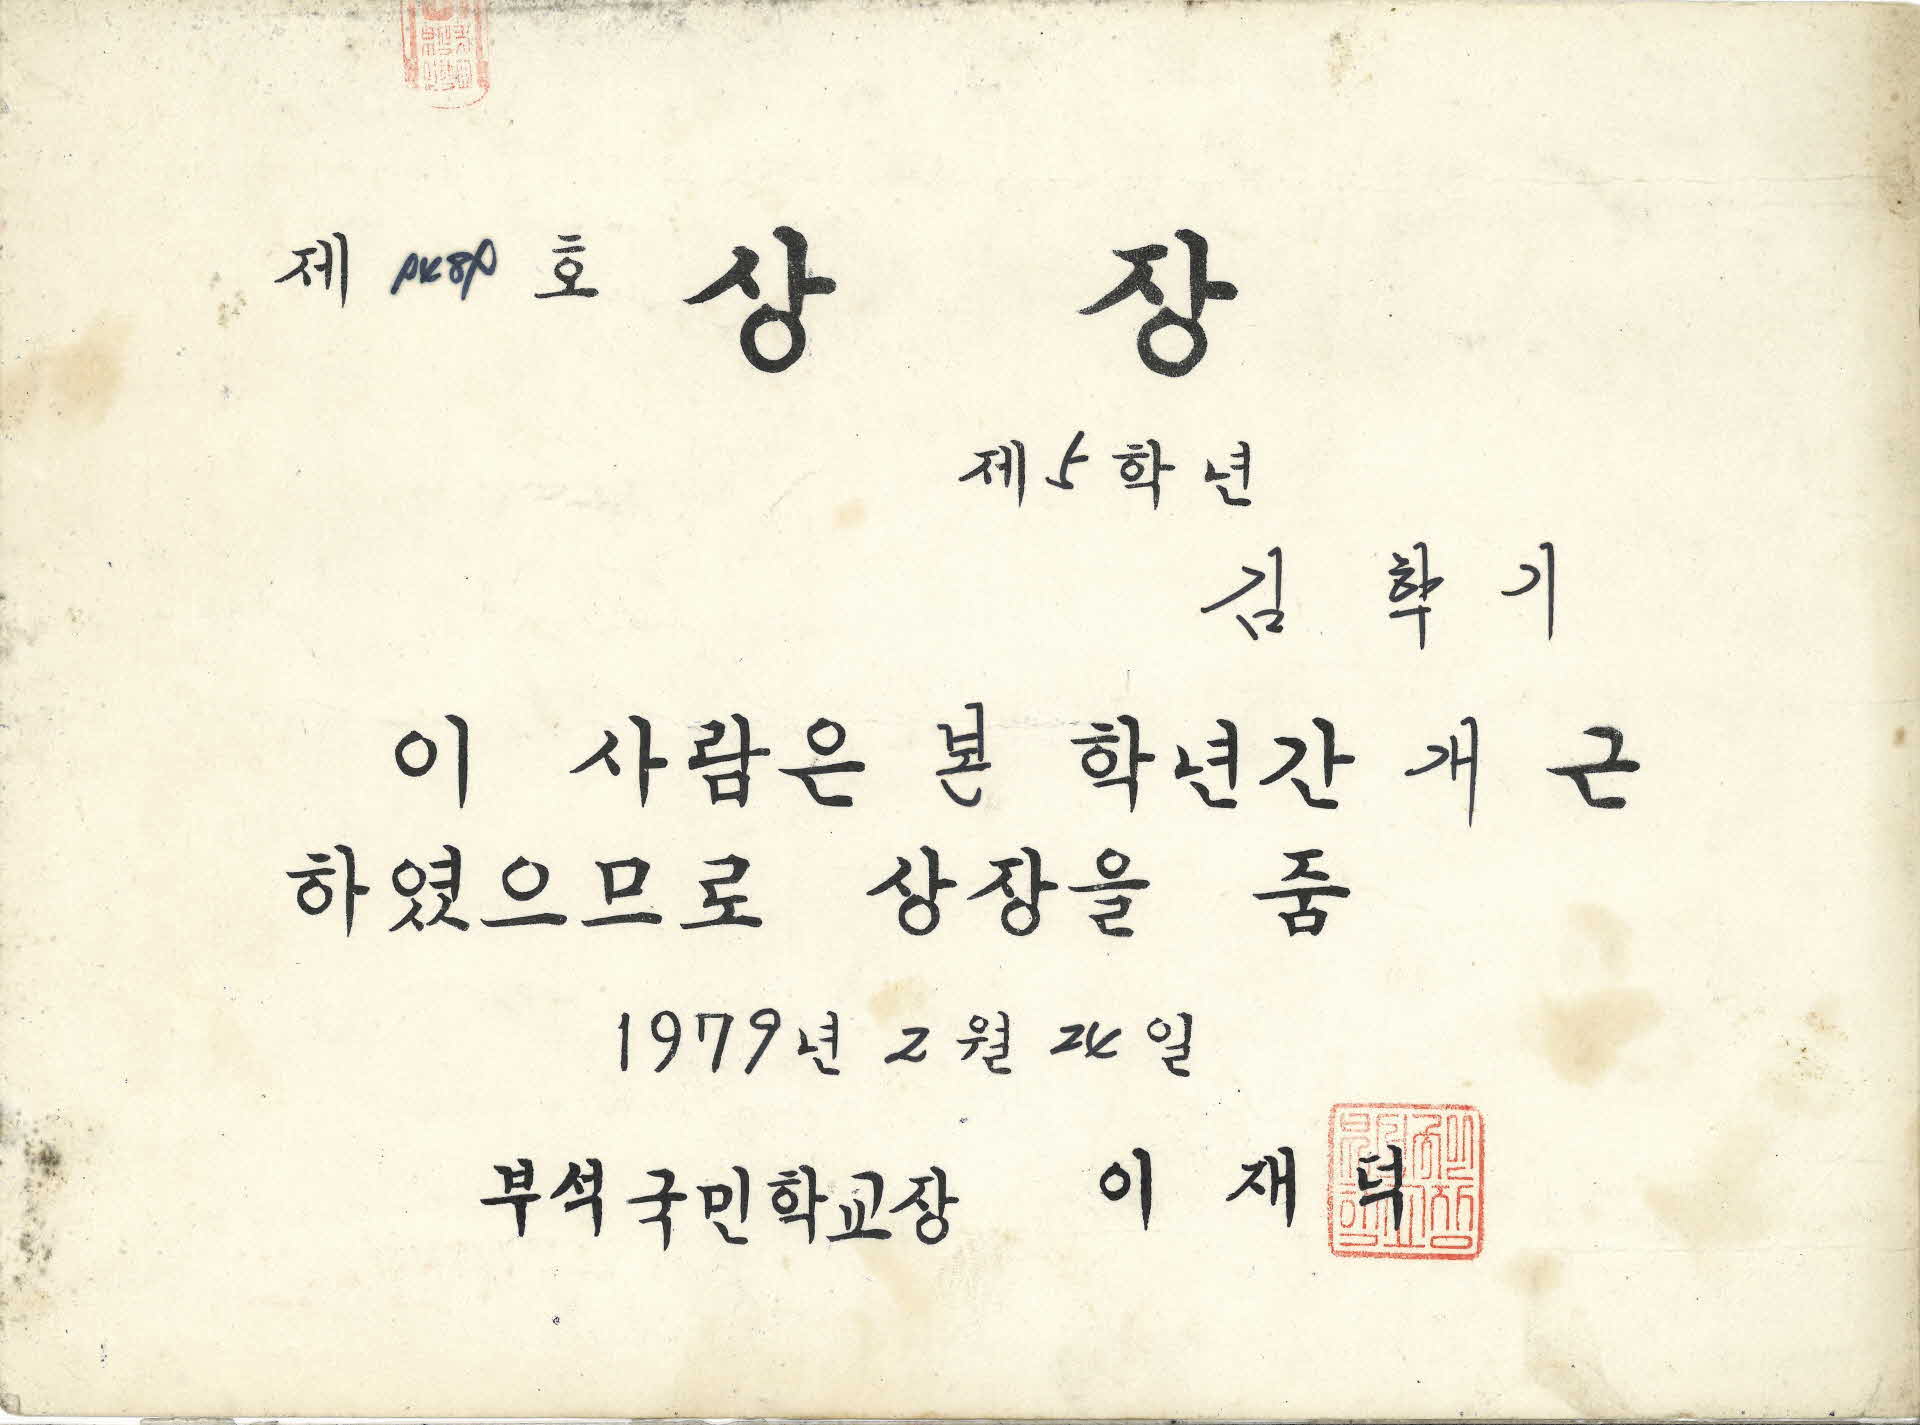 제 호 상 장
제5학년
김 학 기
이 사람은 본 학년간 개 근
하였으므로 상장을 줌
1979년 2월 24일
부석국민학교장 이 재 덕